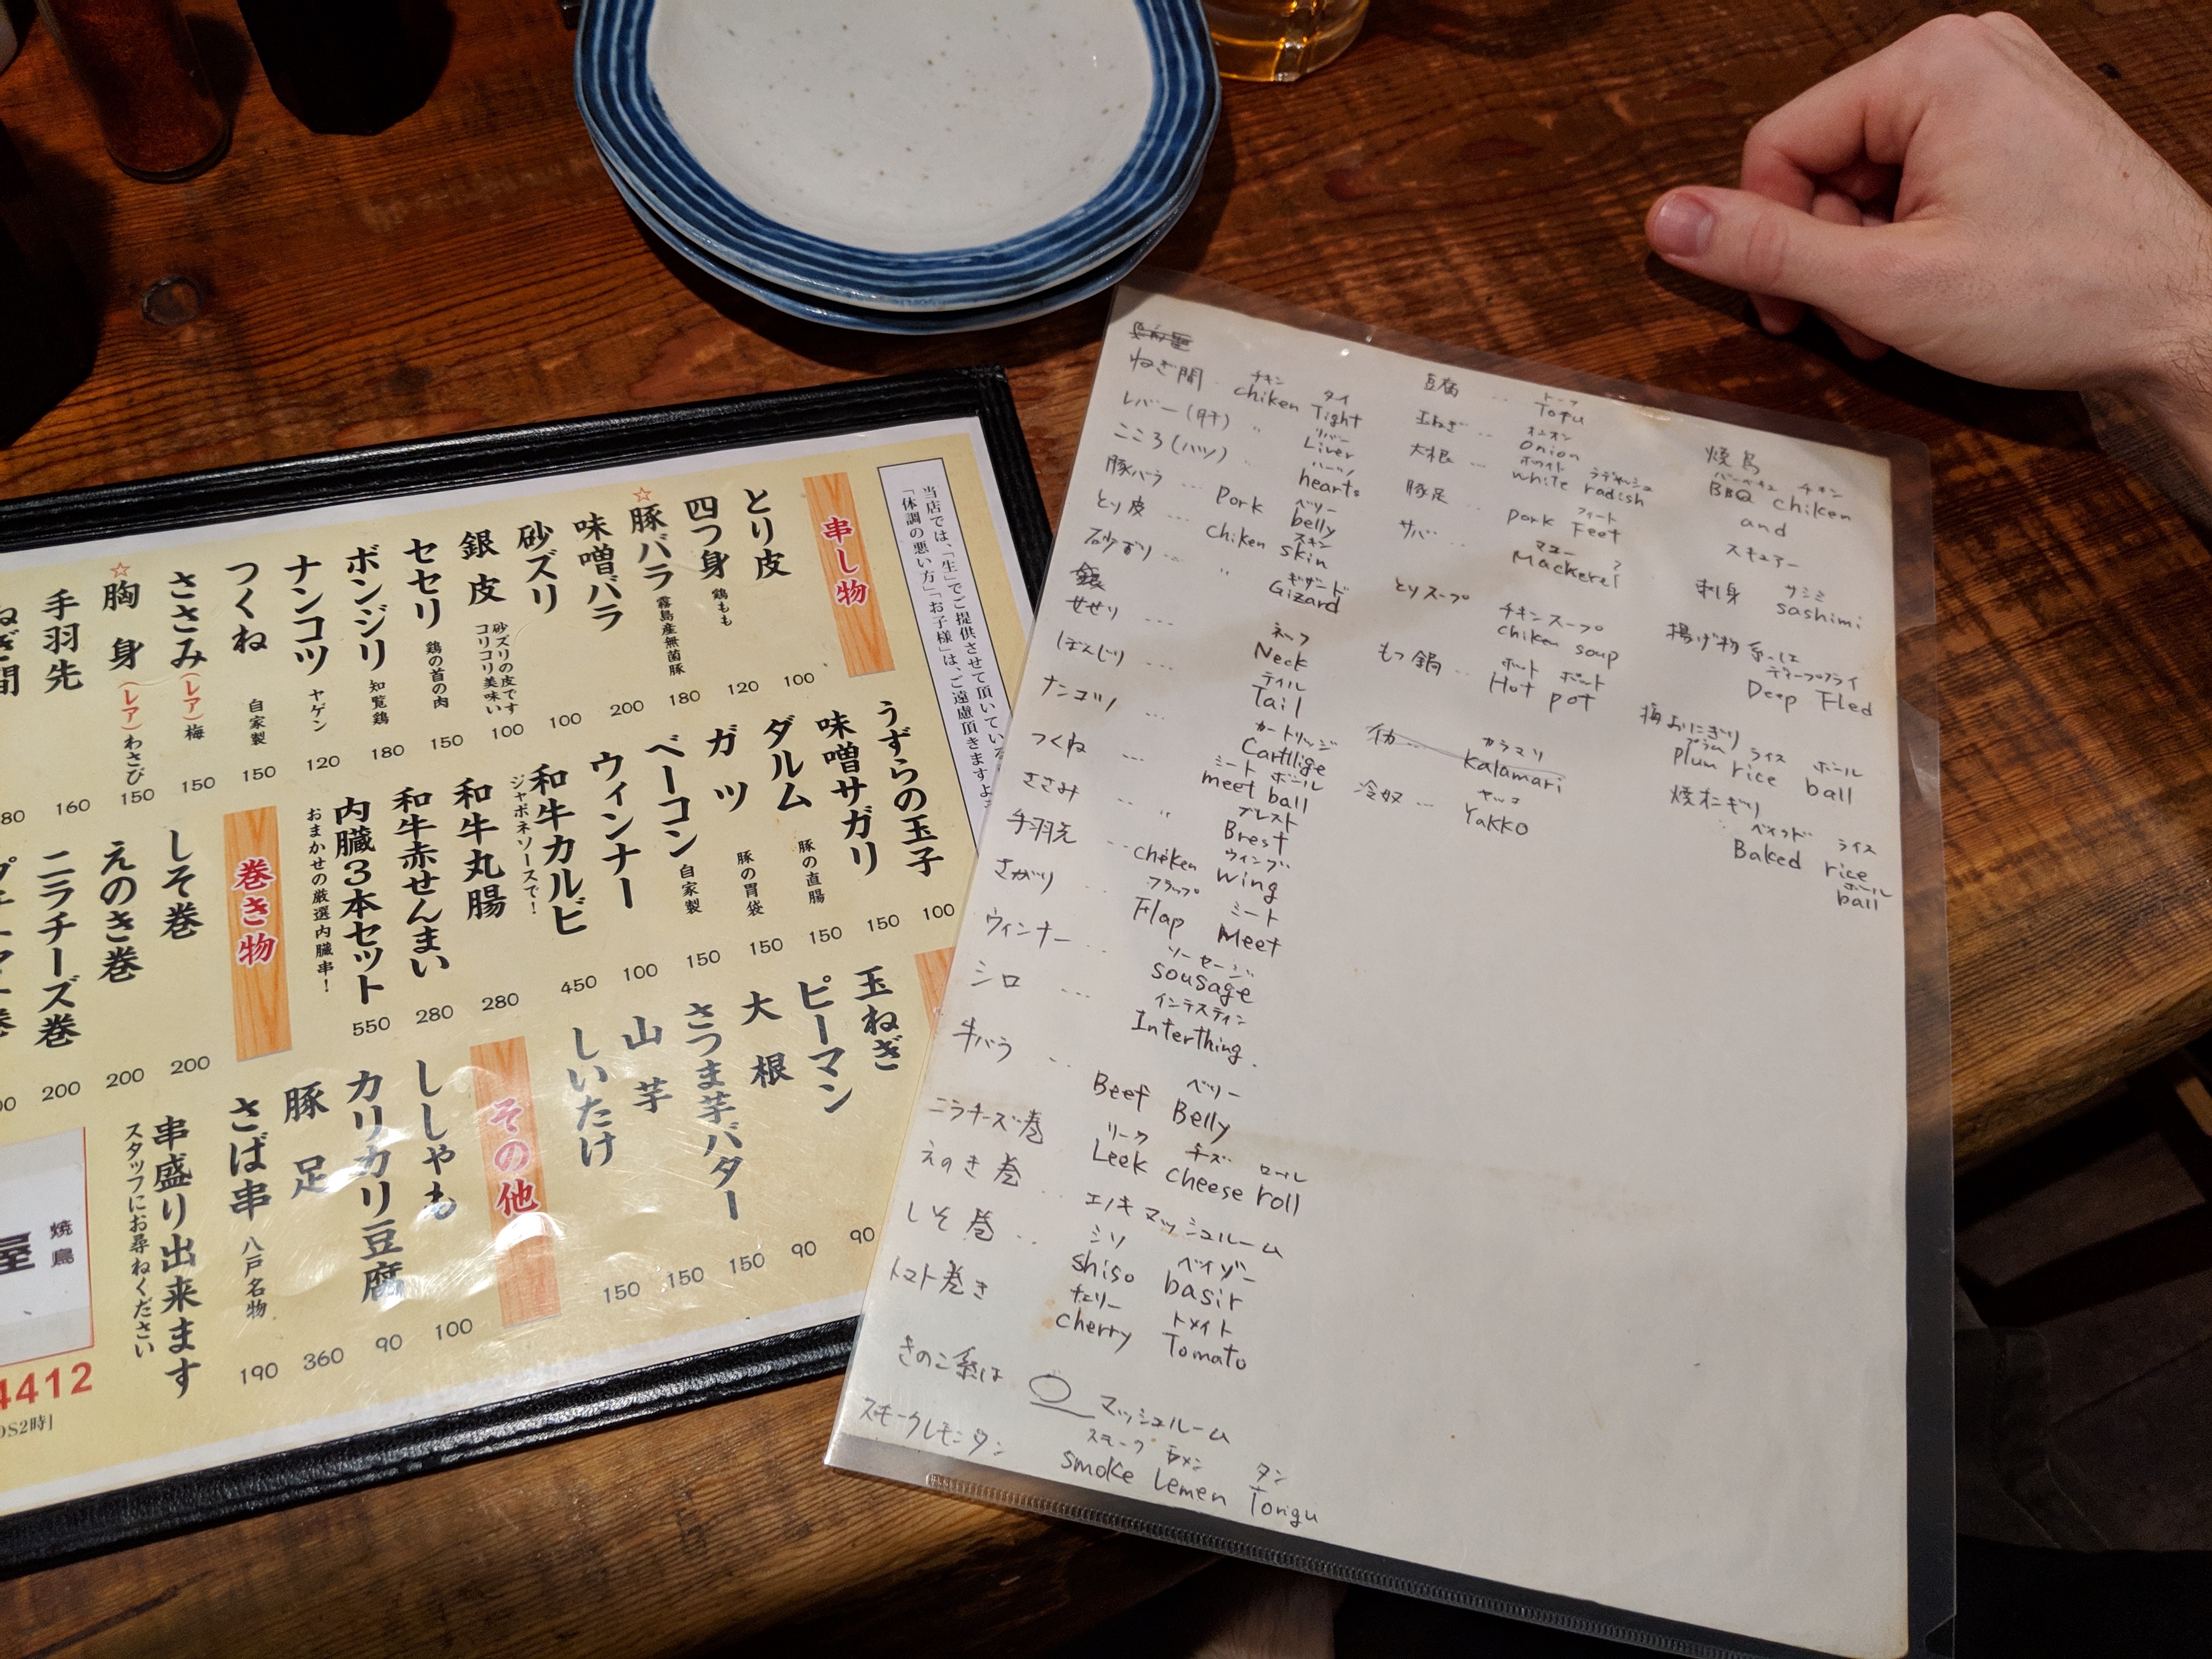 当店では、「生」でご提供させて頂いてい
「体調の悪い方」「お子様」は、ご遠慮頂きますよ
串し物
とり皮 100
四つ身 鶏もも 120
☆豚バラ 霧島産無菌豚 180
味噌バラ 200
砂ズリ 100
銀皮 砂ズリの皮です コリコリ美味い 100
セセリ 鶏の首の肉 150
ボンジリ 知覧鶏 180
ナンコツ ヤゲン 120
つくね 自家製 150
ささみ(レア)梅 150
☆胸身(レア)わさび 150
手羽先 160
ねぎ間 80
うずらの玉子 100
味噌サガリ 150
ダルム 豚の直腸 150
ガツ 豚の胃袋 150
ベーコン 自家製 150
ウィンナー 100
和牛カルビ ジャポネソースで! 450
和牛丸腸 280
和牛赤せんまい 280
内臓3本セット おまかせの厳選内臓串! 550
巻き物
しそ巻 200
えのき巻 200
ニラチーズ巻 200
玉ねぎ 90
ピーマン 90
大根 150
さつま芋バター 150
山芋 150
しいたけ
その他
ししゃも 100
カリカリ豆腐 90
豚足 360
さば串 八戸名物 190
串盛り出来ます
スタッフにお尋ねください
焼鳥
屋
4412
OS2時]
ねぎ間 チキン chiken タイ Tight
レバー(肝) 〃 リバー Liver
こころ(ハツ) 〃 ハーツ hearts
豚バラ … Pork ベリー belly
とり皮 … Chiken スキン skin
砂ずり … 〃 ギザード Gizard
せせり … ネック Neck
ぼんじり … テイル Tail
ナンコツ … カートリッジ Cartlige
つくね … ミートボール meet ball
ささみ … 〃 ブレスト Brest
手羽先 … cheken ウィング wing
さがり … フラップ Flap ミート Meet
ウィンナー … ソーセージ sousage
シロ … インテスティン Interthing.
牛バラ … Beef ベリー Belly
ニラチーズ巻 リーク Leek チーズ cheese ロール roll
えのき巻 … エノキ マッシュルーム
しそ巻 … シソ shiso ベイゾー basir
トマト巻き チェリー cherry トメイト Tomato
きのこ系は マッシュルーム
スモークレモンタン スモーク smoke レメン Lemen タン Tongu
豆腐 … トーフ Tofu
玉ねぎ … オニオン Onion
大根 … ホワイト white ラディッシュ radish
豚足 … Pork フィート Feet
サバ … マコー? Mackerel
とりスープ チキンスープ chiken soup
もつ鍋 … ホット Hot ポット pot
イカ … カラマリ kalamari
冷奴 … ヤッコ Yakko
焼鳥
バーベキュー BBQ チキン chiken
and
スキュアー
刺身 サシミ sashimi
揚げ物系は
ディープフライ Deep Fled
梅おにぎり
プラム plum ライス rice ボール ball
焼オニギリ
ベイクド Baked ライス rice
ボール ball